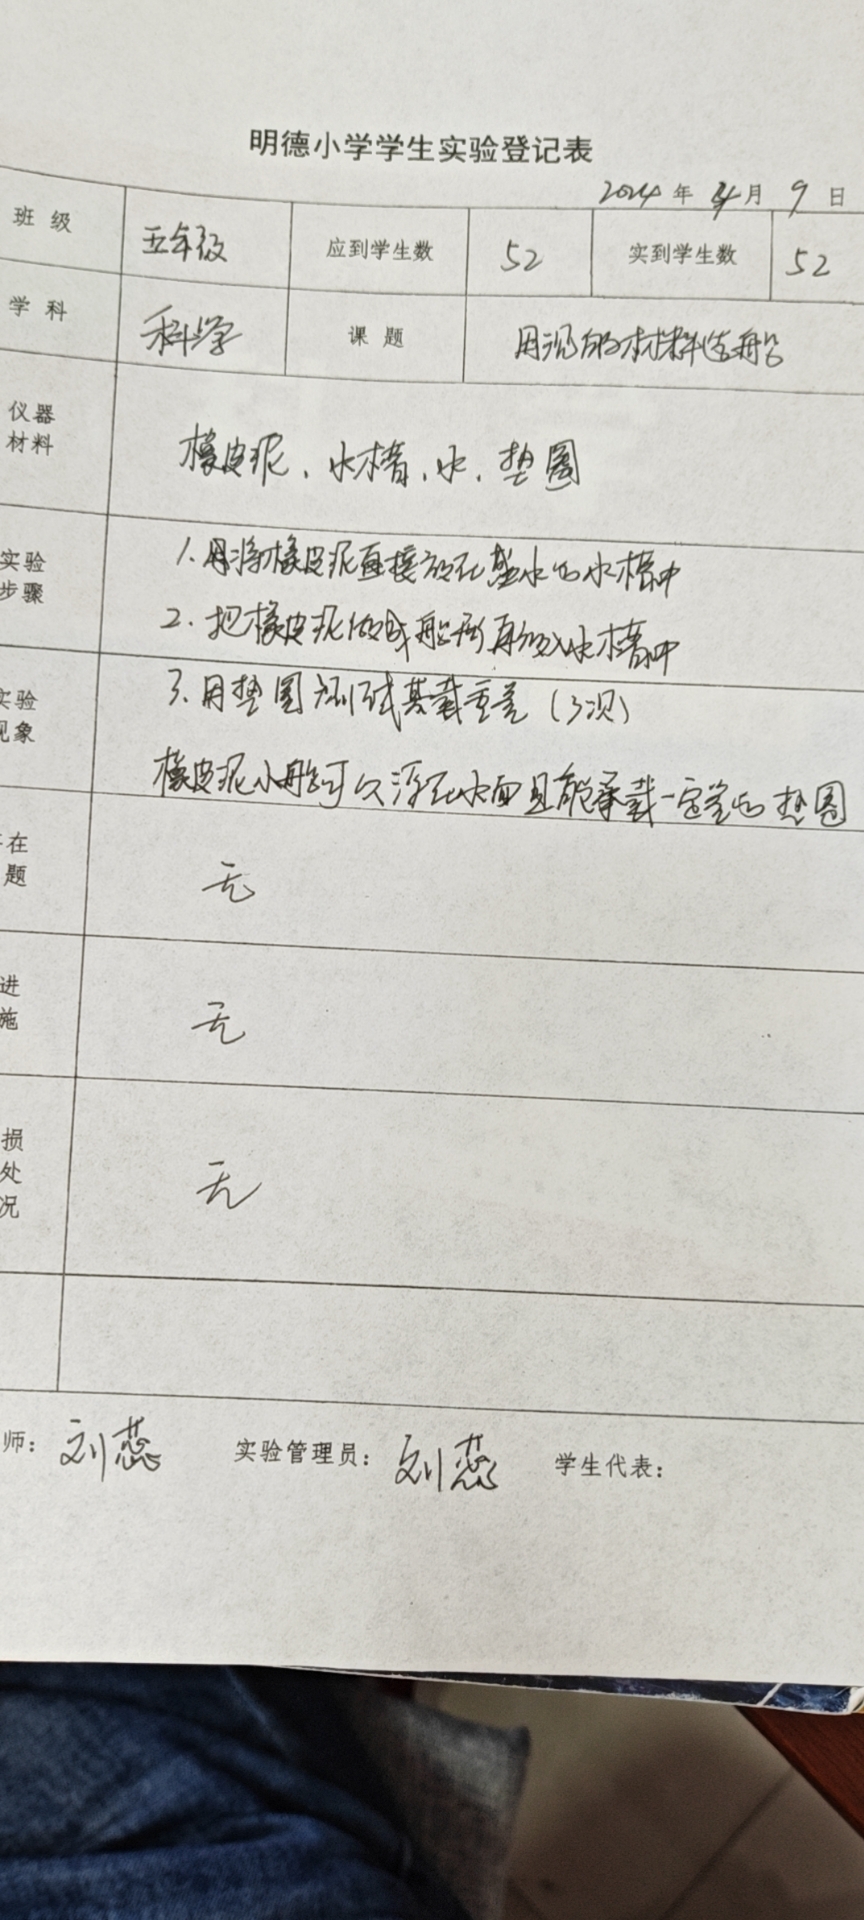 明德小学学生实验登记表
2024 年 4月 9 日
班 级 五年级 应到学生数 52 实到学生数 52
学 科 科学 课 题 用沉的材料造船
仪器
材料
橡皮泥、水槽、水、垫圈
实验
步骤
1.将橡皮泥直接放在盛水的水槽中
2.把橡皮泥做成船形再放入水槽中
实验
现象
3.用垫圈测试其载重量(3次)
橡皮泥小船可以浮在水面且能承载一定量的垫圈
在
题
无
进
施
无
损
处
况
无
师: 刘蕊 实验管理员: 刘蕊 学生代表: